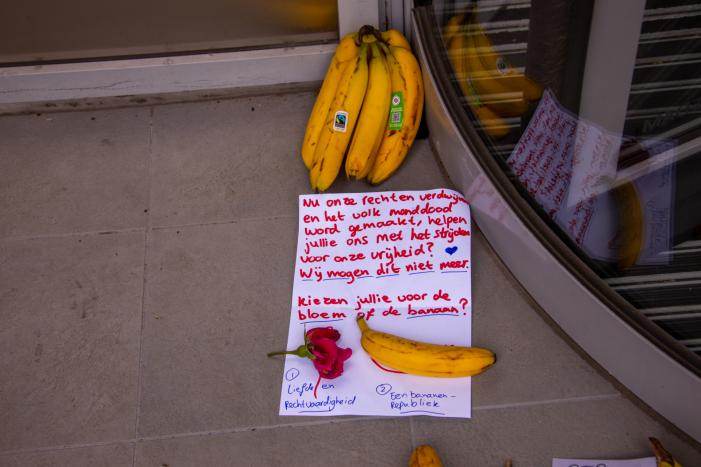 Nu onze rechten verdwijnen
en het volk monddood
word gemaakt, helpen
jullie ons met het strijden
voor onze vrijheid?
Wij mogen dit niet meer.
Kiezen jullie voor de
bloem of de banaan?
① Liefde en
Rechtvaardigheid
② Een bananen-
Republiek